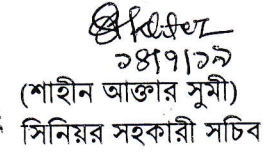 ১৪/৭/১৯
(শাহীন আক্তার সুমী)
সিনিয়র সহকারী সচিব